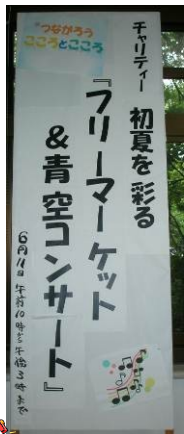 つながろう
こころとこころ
チャリティー 初夏を彩る
『フリーマーケット
&青空コンサート』
6月14日 午前10時〜午後3時まで